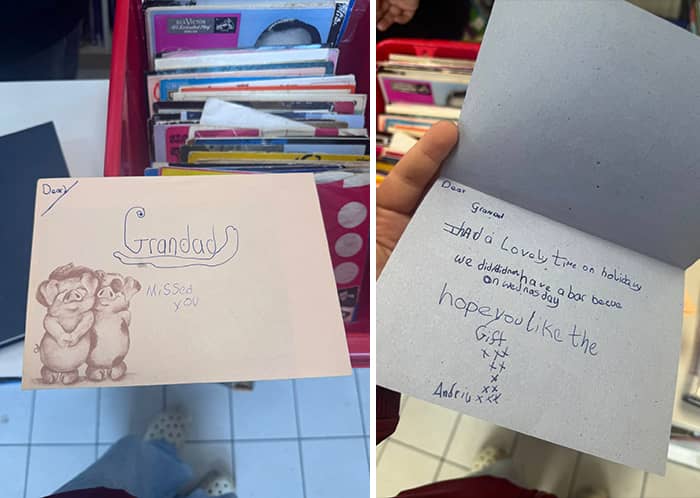 RCA VICTOR
Dear
Grandad
Missed
you
Dear
Grandad
I had a Lovely time on holiday
we did have a bar becue
on wednasday
hope you like the
Gift
x x x
x x
x
x x
Andriu x x x